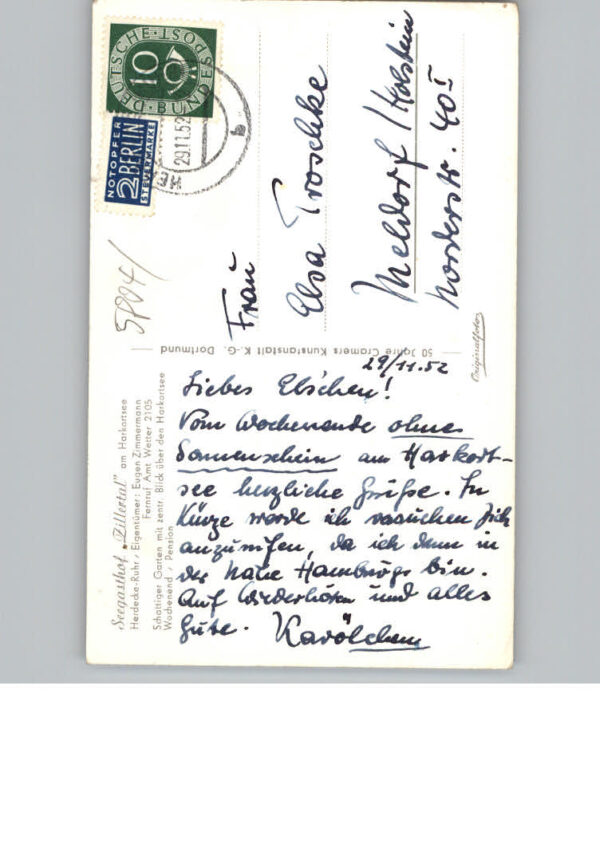 DEUTSCHE·BUNDESPOST
10
NOTOPFER
2 BERLIN
STEUERMARKE
29.11.52
b
5P04/
Frau
Elsa Troschke
Meldorf/Holstein
Norderstr. 40 I
50 Jahre Cramers Kunstanstalt K.-G. Dortmund
Originalfoto
Seegasthof „Zillertal" am Harkortsee
Herdecke-Ruhr / Eigentümer: Eugen Zimmermann
Fernruf Amt Wetter 2105
Schattiger Garten mit zentr. Blick über den Harkortsee
Wochenend / Pension
29/11.52
Liebes Elschen!
Vom Wochenende ohne
Sonnenschein am Harkort-
see herzliche Grüße. In
Kürze werde ich versuchen Dich
anzurufen, da ich dann in
der Nähe Hamburgs bin.
Auf Wiederhören und alles
Gute. Karölchen